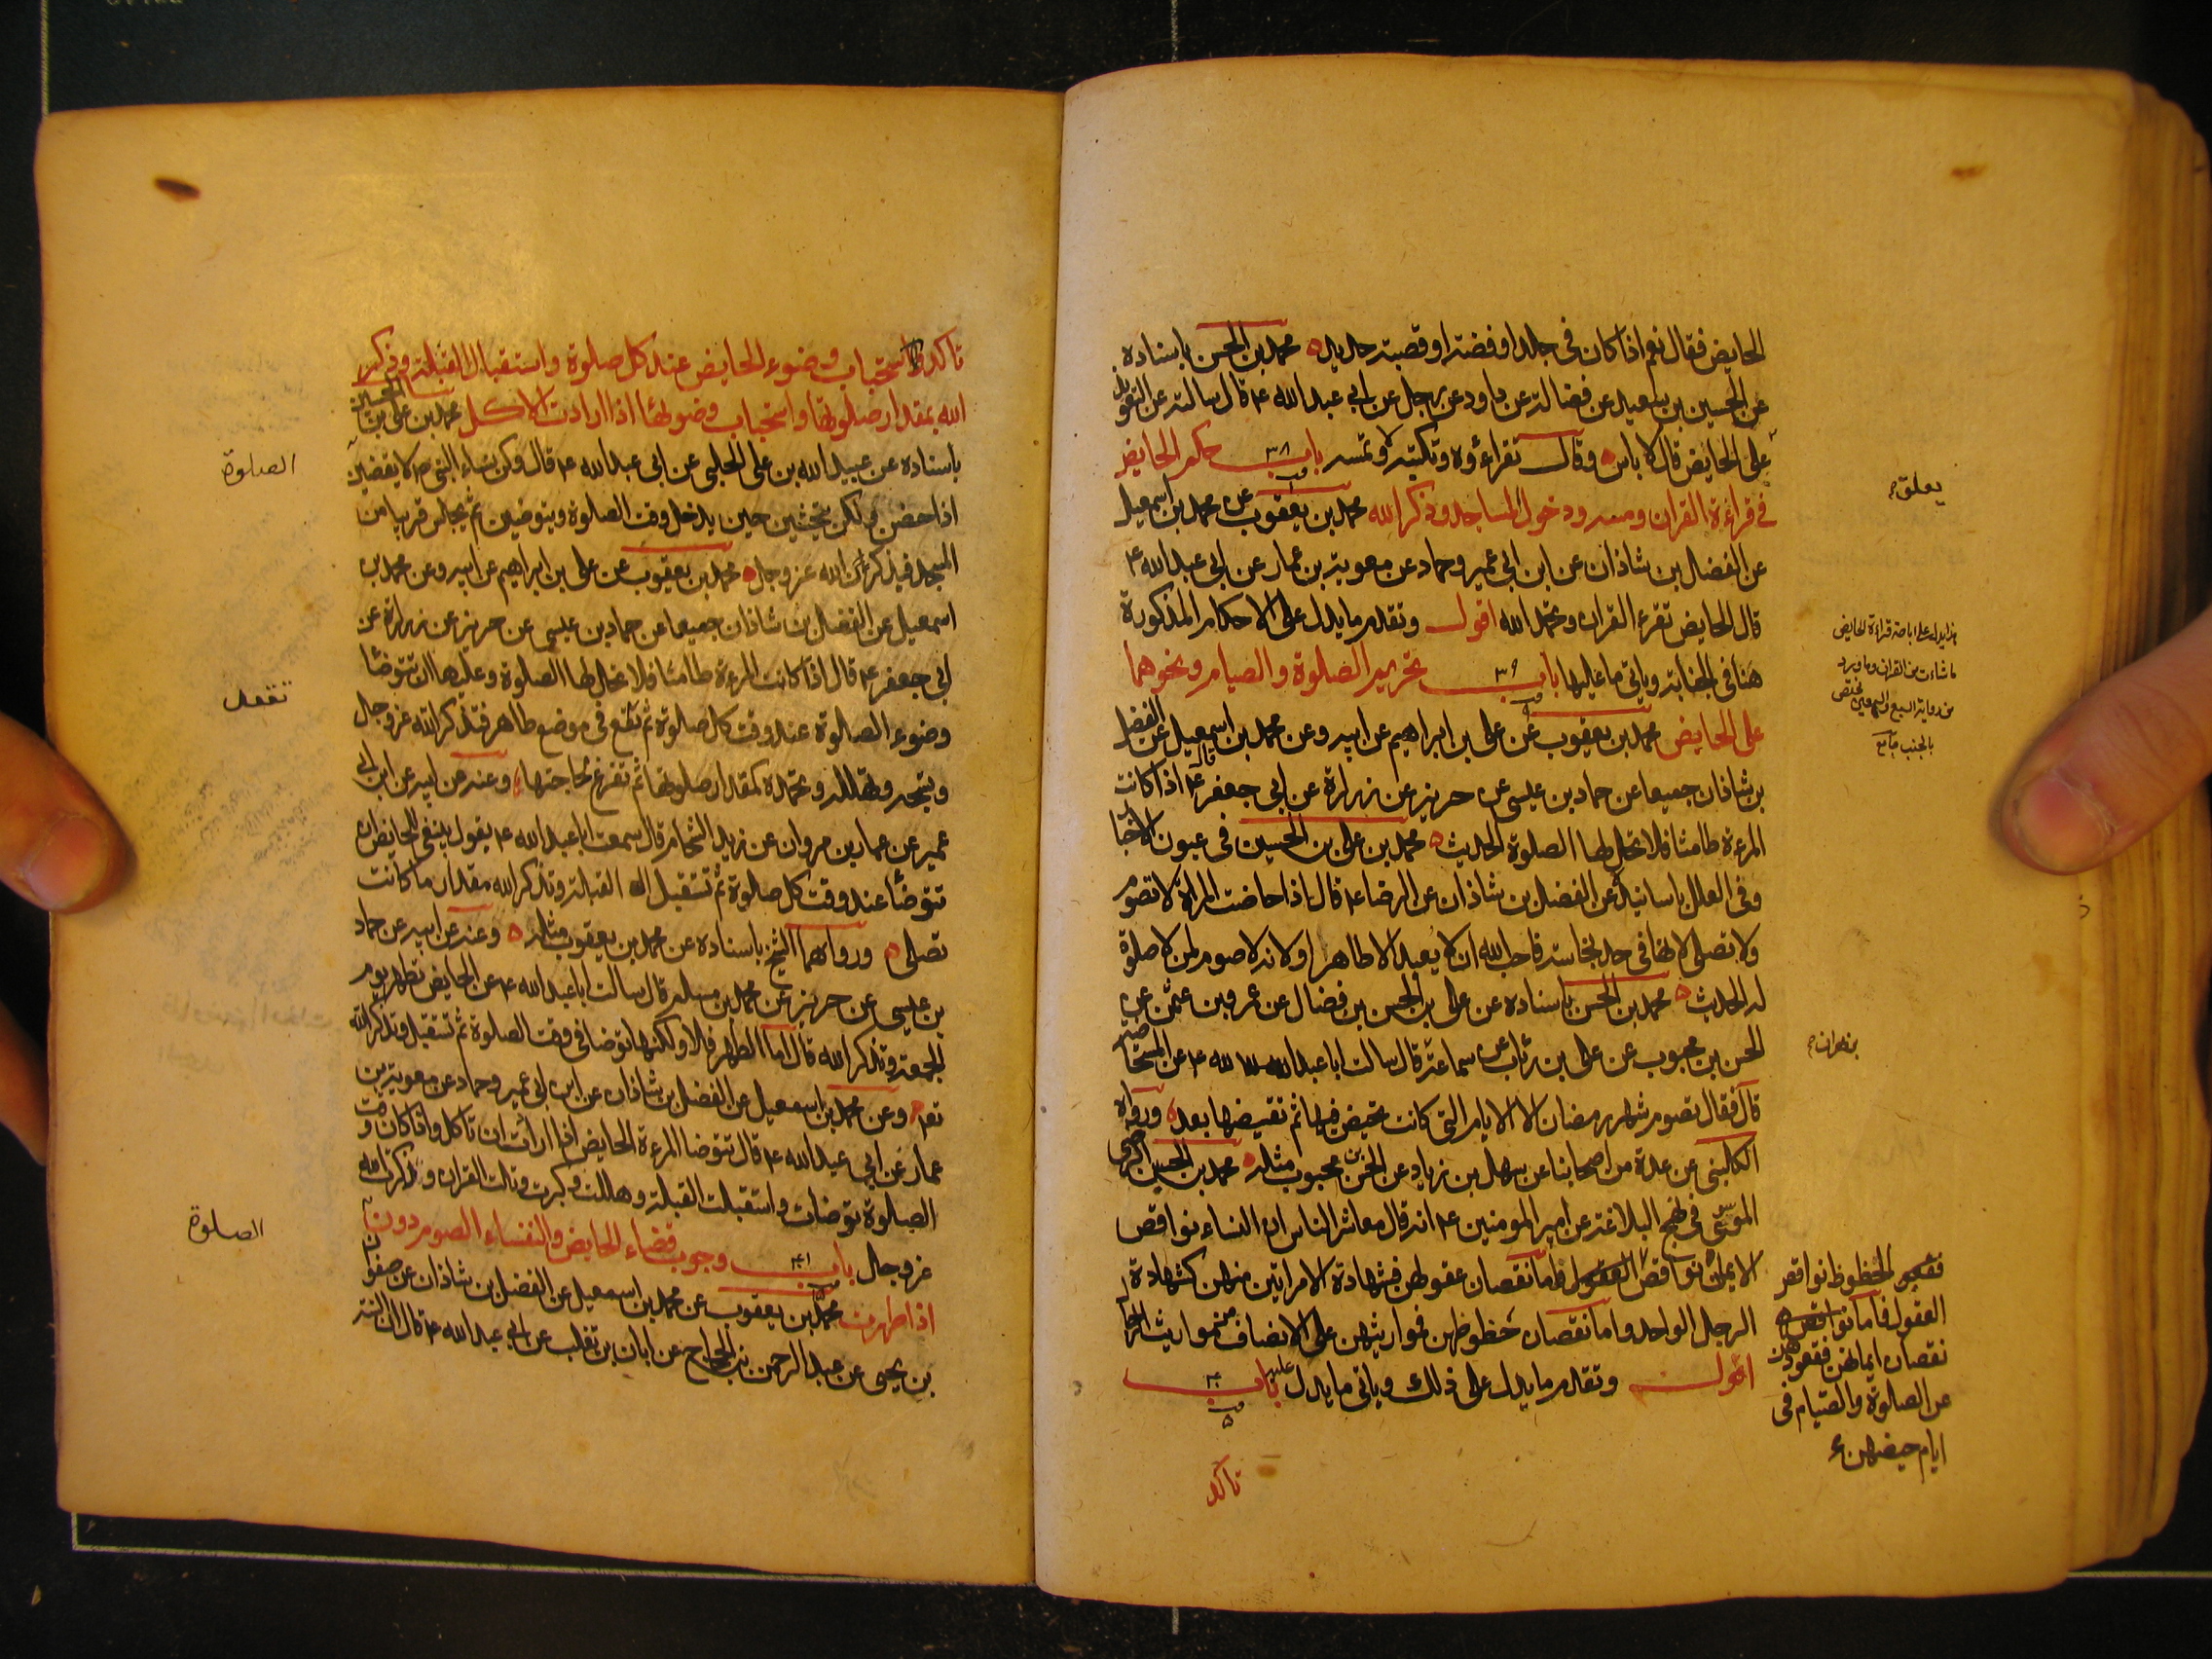 الحايض فقال نعم اذا كان في جلد او فضة او قصبة حديد محمد بن الحسن باسناده
عن الحسين بن سعيد عن فضالة عن داود عن رجل عن ابي عبد الله ع قال سالته عن التعويذ
على الحايض قال لا باس وقال تقراءه وتكتبه ولا تمسه باب ٣٨ حكم الحايض
في قراءة القران ومسه ودخول المساجد وذكر الله محمد بن يعقوب عن محمد بن اسمعيل
عن الفضل بن شاذان عن ابن ابي عمير وحماد عن معوية بن عمار عن ابي عبد الله ع
قال الحايض تقرء القران وتحمد الله اقول وتقدم ما يدل على الاحكام المذكورة
هنا في الجنابة وياتي ما عليها باب ٣٩ تحريم الصلوة والصيام ونحوهما
على الحايض محمد بن يعقوب عن على بن ابراهيم عن ابيه وعن محمد بن اسمعيل عن الفضل
بن شاذان جميعا عن حماد بن عيسى عن حريز عن زرارة عن ابي جعفر ع قال اذا كانت
المرءة طامثا فلا تحل لها الصلوة الحديث محمد بن على بن الحسين في عيون الاخبا
وفي العلل باسانيده عن الفضل بن شاذان عن الرضا ع قال اذا حاضت المراة لا تصوم
ولا تصلى لانها في حد نجاسة فاحب الله ان لا يعبد الا طاهرا ولانه لا صوم لمن لا صلوة
له الحديث محمد بن الحسن باسناده عن على بن الحسن بن فضال عن عمرو بن عثمن عن
الحسن بن محبوب عن على بن رئاب عن سماعة قال سالت ابا عبد الله ع عن المستحاضة
قال فقال تصوم شهر رمضان الا الايام التي كانت تحيض فيها ثم تقضيها بعد ورواه
الكليني عن عدة من اصحابنا عن سهل بن زياد عن الحسن بن محبوب مثله محمد بن الحسين الرضى
الموسى في نهج البلاغة عن امير المومنين ع انه قال معاشر الناس ان النساء نواقص
الايمان نواقص العقول فاما نقصان عقولهن فشهادة الامراتين منهن كشهادة
الرجل الواحد واما نقصان حظوظهن فمواريثهن على الانصاف من مواريث الرجا
اقول وتقدم ما يدل على ذلك وياتي ما يدل عليه باب ٤٠
تاكد
يعلق
هذا يدل على اباحة قراءة الحايض
ما شاءت من القران وما ورد
من رواية السبع والسبعين مختص
بالجنب
بن مهران
الحظوظ نواقص
العقول فاما
نقصان ايمانهن فقعودهن
عن الصلوة والصيام في
ايام حيضهن
تاكد استحباب وضوء الحايض عند كل صلوة واستقبال القبلة وذكر
الله بمقدار صلوتها واستحباب وضوئها اذا ارادت الاكل محمد بن على بن الحسين
باسناده عن عبيد الله بن على الحلبي عن ابي عبد الله ع قال وكن نساء النبي ص لا يقضين
اذا حضن ولكن يتحشين حين يدخل وقت الصلوة ويتوضين ثم يجلسن قريبا من
المسجد فيذكرن الله عز وجل محمد بن يعقوب عن على بن ابراهيم عن ابيه وعن محمد بن
اسمعيل عن الفضل بن شاذان جميعا عن حماد بن عيسى عن حريز عن زرارة عن
ابي جعفر ع قال اذا كانت المرءة طامثا فلا تحل لها الصلوة وعليها ان تتوضا
وضوء الصلوة عند وقت كل صلوة ثم تقعد في موضع طاهر فتذكر الله عز وجل
وتسبحه وتهلله وتحمده كمقدار صلوتها ثم تفرغ لحاجتها وعنه عن ابيه عن ابن ابي
عمير عن عمار بن مروان عن زيد الشحام قال سمعت ابا عبد الله ع يقول ينبغي للحايض ان
تتوضا عند وقت كل صلوة ثم تستقبل القبلة وتذكر الله مقدار ما كانت
تصلى ورواهما الشيخ باسناده عن محمد بن يعقوب مثله وعنه عن ابيه عن حماد
بن عيسى عن حريز عن محمد بن مسلم قال سالت ابا عبد الله ع عن الحايض تطهر يوم
الجمعة وتذكر الله قال اما الطهر فلا ولكنها توضا في وقت الصلوة ثم تستقبل وتذكر الله
تع وعن محمد بن اسمعيل عن الفضل بن شاذان عن ابن ابي عمير وحماد عن معوية بن
عمار عن ابي عبد الله ع قال تتوضا المرءة الحايض اذا ارادت ان تاكل واذا كان وقت
الصلوة توضات واستقبلت القبلة وهللت وكبرت وتلت القران وذكرت الله
عز وجل باب ٤١ وجوب قضاء الحايض والنفساء الصوم دون
اذا طهرت محمد بن يعقوب عن محمد بن اسمعيل عن الفضل بن شاذان عن صفوا
بن يحيى عن عبد الرحمن بن الحجاج عن ابان بن تغلب عن ابي عبد الله ع قال ان السنة
الصلوة
تفعل
الصلوة